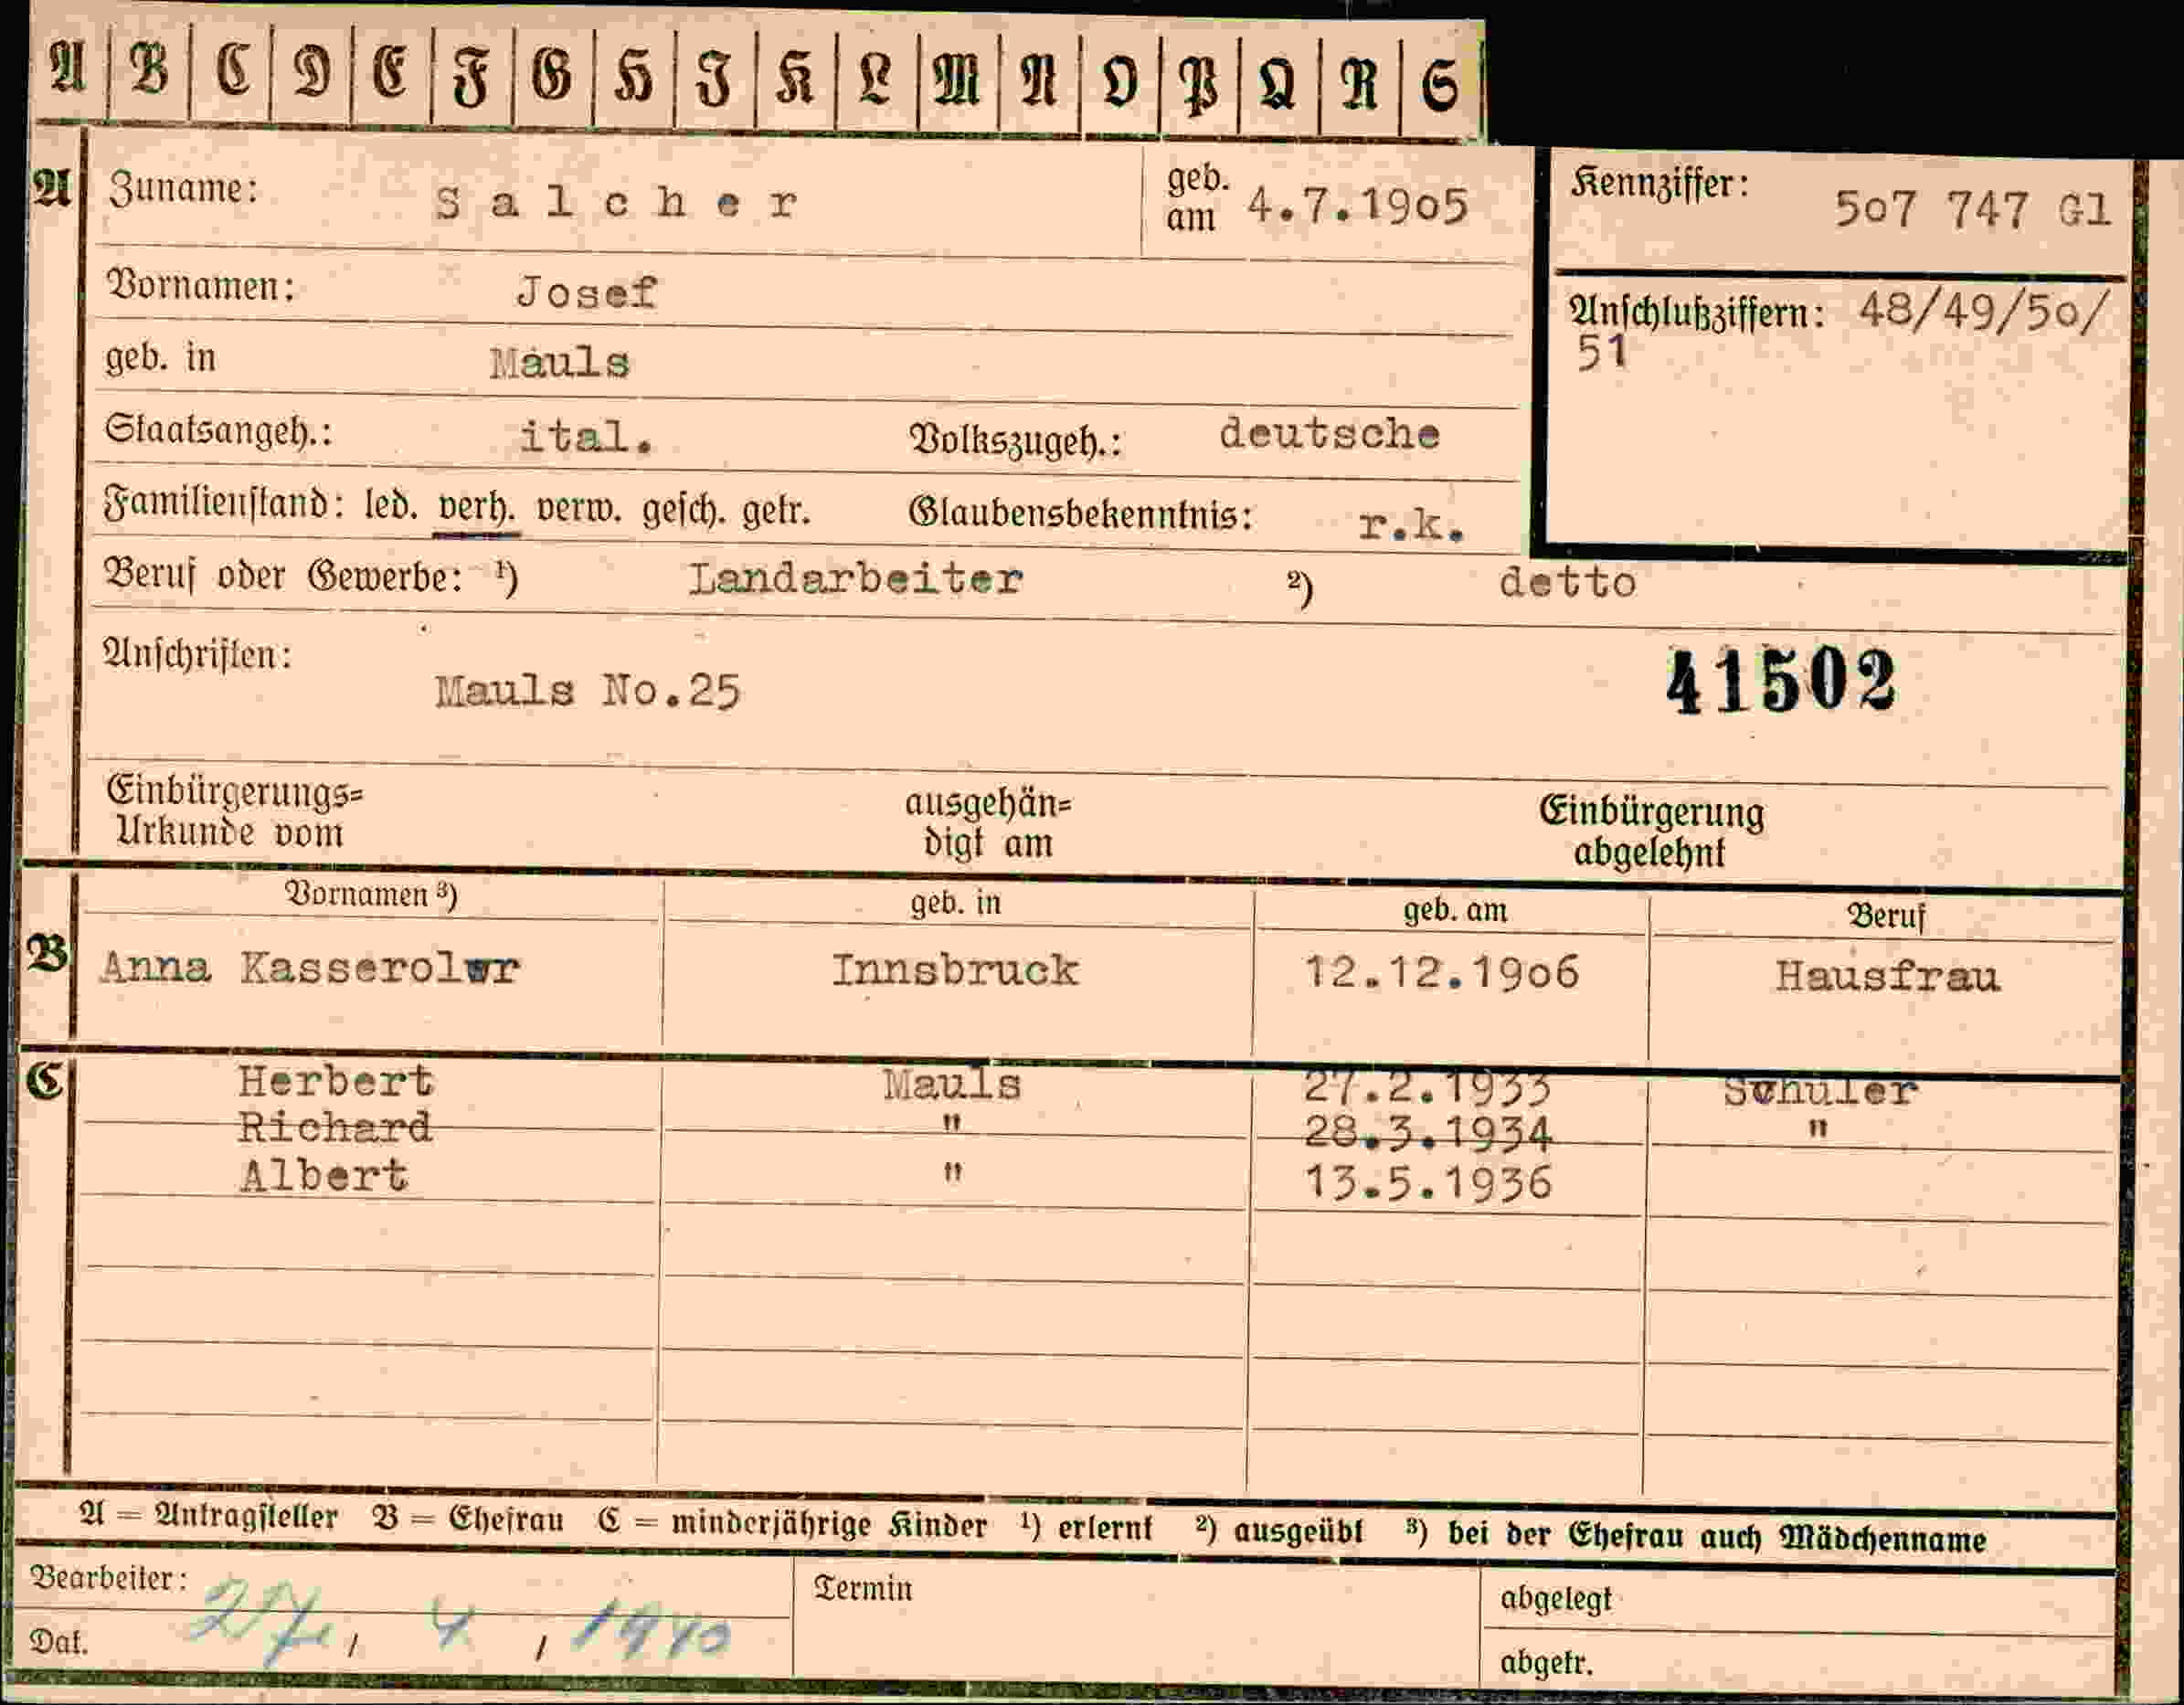 A B C D E F G H J K L M N O P Q R S
A Zuname: Salcher geb. am 4.7.1905 Kennziffer: 507 747 Gl
Vornamen: Josef Anschlußziffern: 48/49/50/
51
geb. in Mauls
Staatsangeh.: ital. Volkszugeh.: deutsche
Familienstand: led. verh. verw. gesch. getr. Glaubensbekenntnis: r.k.
Beruf oder Gewerbe: ¹) Landarbeiter ²) detto
Anschriften: 41502
Mauls No.25
Einbürgerungs= ausgehän= Einbürgerung
Urkunde vom digt am abgelehnt
Vornamen ³) geb. in geb. am Beruf
B Anna Kasseroler Innsbruck 12.12.1906 Hausfrau
C Herbert Mauls 27.2.1933 Schüler
Richard " 28.3.1934 "
Albert " 13.5.1936
A = Antragsteller B = Ehefrau C = minderjährige Kinder ¹) erlernt ²) ausgeübt ³) bei der Ehefrau auch Mädchenname
Bearbeiter: Termin abgelegt
Dat. 27 / 4 / 1940 abgetr.